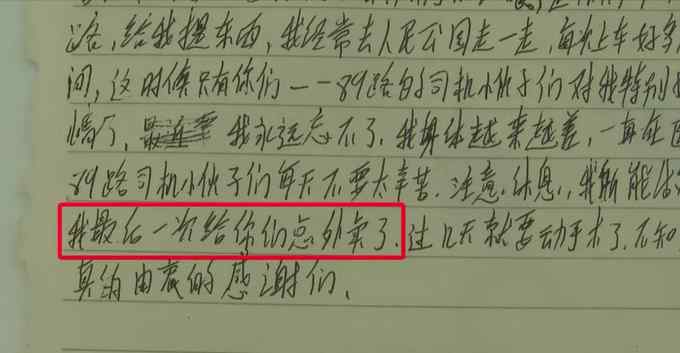 路,给我提东西,我经常去人民公园走一走,每次上车好多
间,这时候只有你们——89路的司机小伙子们对我特别
我永远忘不了.我身体越来越差,一直在
89路司机小伙子们每天不要太辛苦.注意休息,我所能做
我最后一次给你们点外卖了.过几天就要动手术了.不知
真的由衷的感谢们、